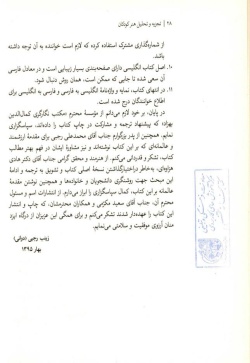 ۲۸ | تجزیه و تحلیل هنر کودکان
از شماره‌گذاری مشترک استفاده کرده که لازم است خواننده به آن توجه داشته
باشد.
۱۰. اصل کتاب انگلیسی دارای صفحه‌بندی بسیار زیبایی است و در معادل فارسی
آن سعی شده تا جایی که ممکن است، همان روش دنبال شود.
۱۱. در انتهای کتاب، نمایه و واژه‌نامه انگلیسی به فارسی و فارسی به انگلیسی برای
اطلاع خوانندگان درج شده است.
در پایان، بر خود لازم می‌دانم از مؤسسهٔ محترم «مکتب نگارگری کمال‌الدین
بهزاد» که پیشنهاد ترجمه و مشارکت در چاپ کتاب را داده‌اند، سپاسگزاری
نمایم. همچنین از پدر بزرگوارم جناب آقای محمدعلی رجبی برای مقدمهٔ ارزشمند
و عالمانه‌ای که بر این کتاب نوشته‌اند و نیز مشاورهٔ ایشان در فهم بهتر مطالب
کتاب، تشکر و قدردانی می‌کنم. از هنرمند و محقق گرامی جناب آقای دکتر هادی
هزاوه‌ای، به‌خاطر دراختیارگذاشتن نسخهٔ اصلی کتاب و تشویق به ترجمه و ادامهٔ
این مبحث جهت روشنگری دانشجویان و خانواده‌ها و همچنین نوشتن مقدمهٔ
عالمانه بر این کتاب، کمال سپاسگزاری را ابراز می‌دارم. از انتشارات اسم و مسئول
محترم آن، جناب آقای سعید مکرمی و همکاران محترمشان، که چاپ و انتشار
این کتاب را عهده‌دار شدند تشکر می‌کنم و برای همگی این عزیزان از درگاه ایزد
منان آرزوی موفقیت و سلامتی می‌نمایم.
زینب رجبی (دوانی)
بهار ۱۳۹۵